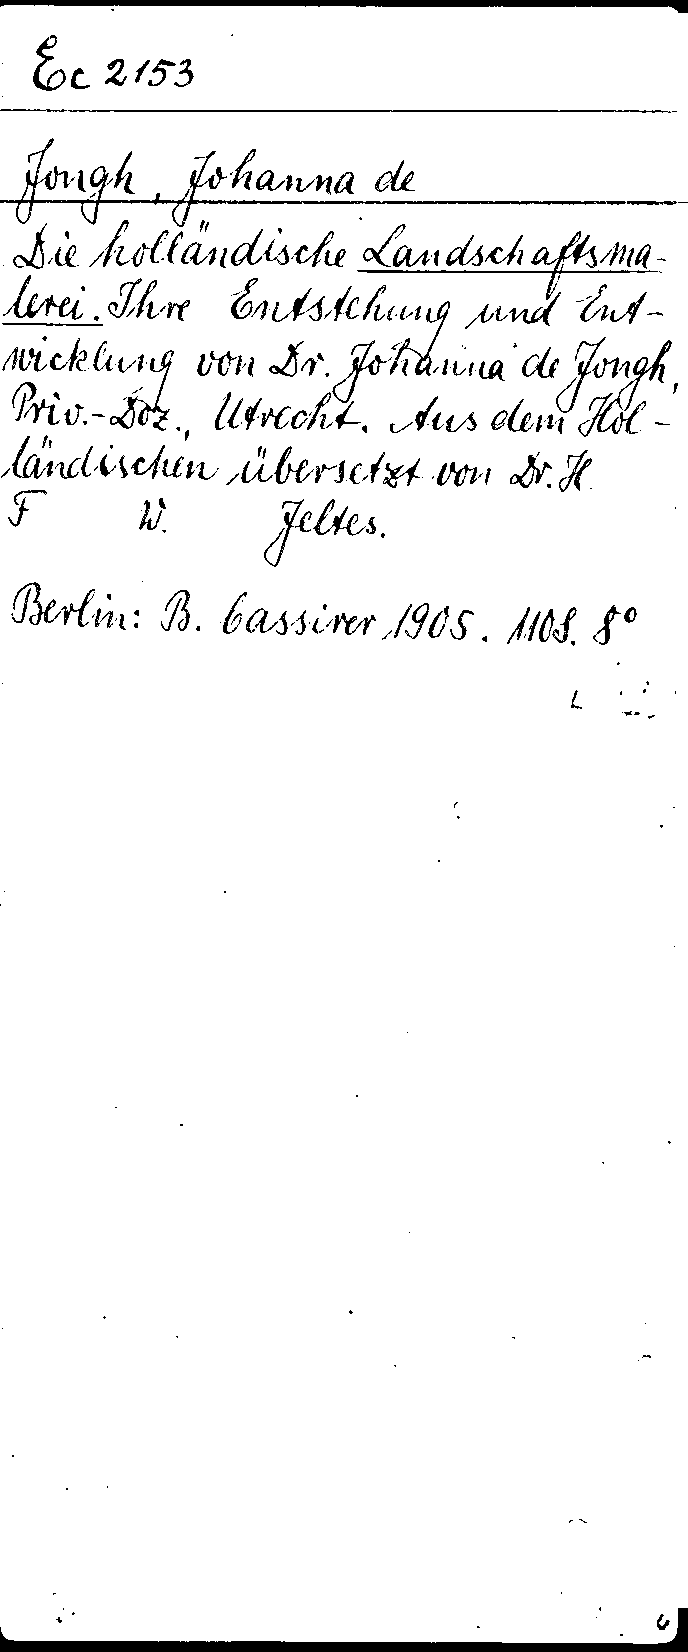 Ec 2153
Jongh, Johanna de
Die holländische Landschaftsma-
lerei. Ihre Entstehung und Ent-
wicklung von Dr. Johanna de Jongh,
Priv.-Doz., Utrecht. Aus dem Hol-
ländischen übersetzt von Dr. H.
F W. Jeltes.
Berlin: B. Cassirer 1905. 110 S. 8°